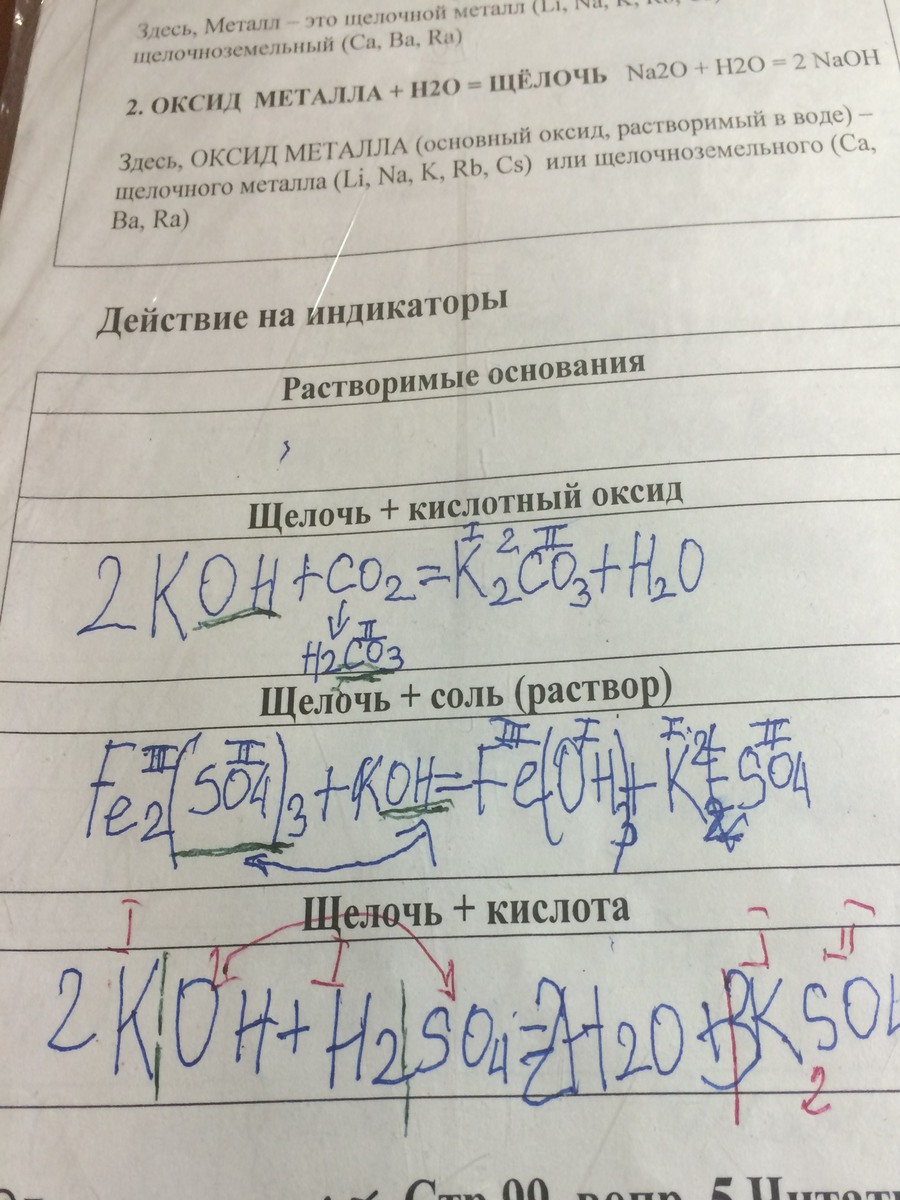 Здесь, Металл – это щелочной металл (Li, Na, K,
щелочноземельный (Ca, Ba, Ra)
2. ОКСИД МЕТАЛЛА + H2O = ЩЁЛОЧЬ Na2O + H2O = 2 NaOH
Здесь, ОКСИД МЕТАЛЛА (основный оксид, растворимый в воде) –
щелочного металла (Li, Na, K, Rb, Cs) или щелочноземельного (Ca,
Ba, Ra)
Действие на индикаторы
Растворимые основания
Щелочь + кислотный оксид
I 2 II
2KOH + CO2 = K2CO3 + H2O
II
H2CO3
Щелочь + соль (раствор)
III II III I I II
Fe2(SO4)3 + KOH = Fe(OH)3 + K2SO4
Щелочь + кислота
I I I I II
2KOH + H2SO4 = 2H2O + KSO4
2
Стр.90, вопр. 5